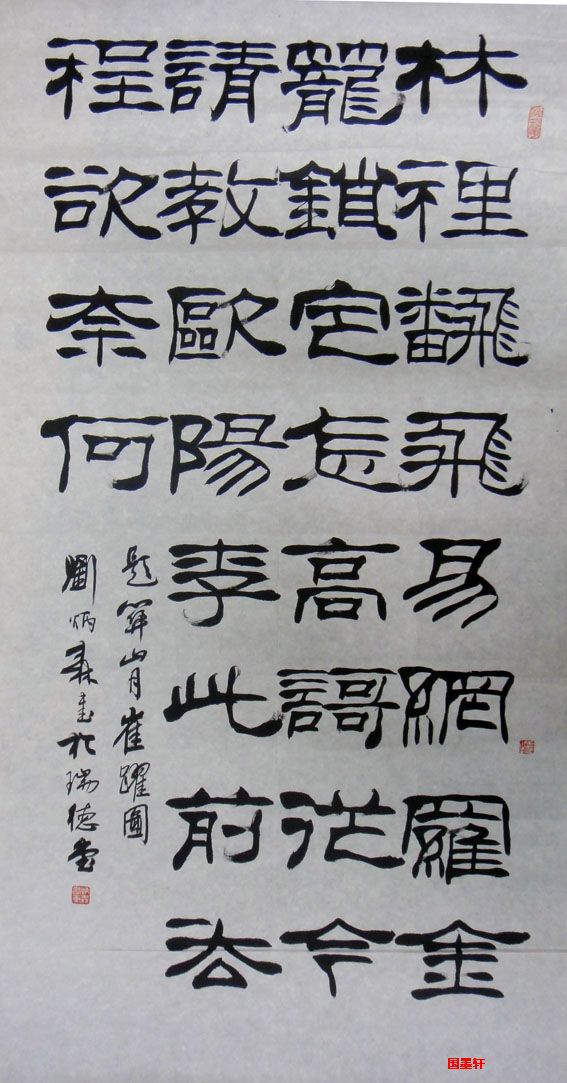 林裡飜飛易網羅金
籠鎖定怎高謌從今
請教歐陽李此前去
程欲奈何
題山月崔躍圖
劉炳森書於瑞德堂
国墨轩